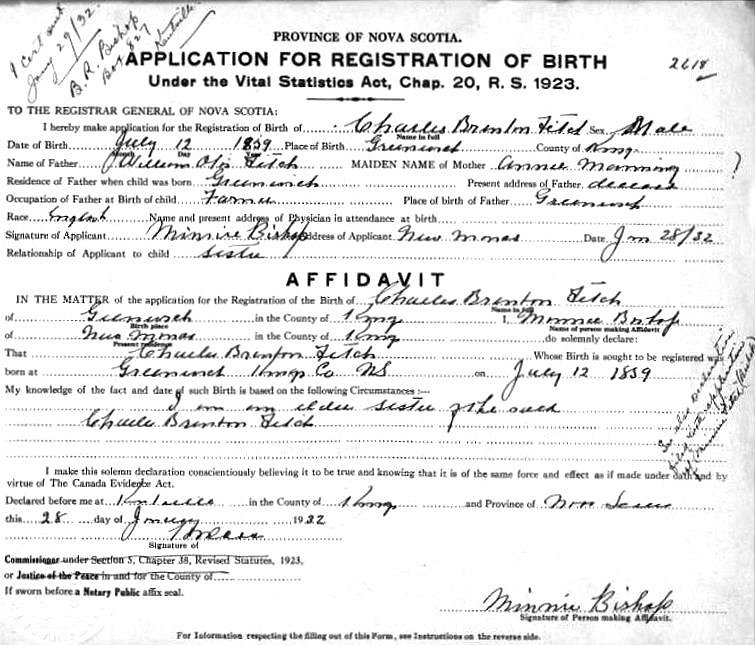 1 Cert sent
Jany 29/32.
B. R. Bishop
Box 827
Kentville
PROVINCE OF NOVA SCOTIA.
APPLICATION FOR REGISTRATION OF BIRTH
2618
Under the Vital Statistics Act, Chap. 20, R. S. 1923.
TO THE REGISTRAR GENERAL OF NOVA SCOTIA:
I hereby make application for the Registration of Birth of Charles Brenton Fitch Sex Male
Name in full
Date of Birth July 12 1859 Place of Birth Greenwich County of Kings
Month Day Year
Name of Father William Otis Fitch MAIDEN NAME of Mother Annie Manning ?
Residence of Father when child was born Greenwich Present address of Father decease
Occupation of Father at Birth of child Farmer Place of birth of Father Greenwich
Race English Name and present address of Physician in attendance at birth
Signature of Applicant Minnie Bishop Address of Applicant New Minas Date Jan 28/32
Relationship of Applicant to child sister
AFFIDAVIT
IN THE MATTER of the application for the Registration of the Birth of Charles Brenton Fitch
Name in full
of Greenwich in the County of Kings I, Minnie Bishop
Birth place Name of person making Affidavit
of New Minas in the County of Kings do solemnly declare:
Present residence
That Charles Brenton Fitch Whose Birth is sought to be registered was
born at Greenwich Kings Co NS on July 12 1859
My knowledge of the fact and date of such Birth is based on the following Circumstances :—
I am an elder sister of the said
Charles Brenton Fitch
See also
filed with application
of Minnie
I make this solemn declaration conscientiously believing it to be true and knowing that it is of the same force and effect as if made under oath and by
virtue of The Canada Evidence Act.
Declared before me at Kentville in the County of Kings and Province of Nova Scotia
this 28 day of January 1932
Signature of
Commissioner under Section 5, Chapter 38, Revised Statutes, 1923.
or Justice of the Peace in and for the County of
If sworn before a Notary Public affix seal.
Minnie Bishop
Signature of Person making Affidavit.
For Information respecting the filling out of this Form, see Instructions on the reverse side.